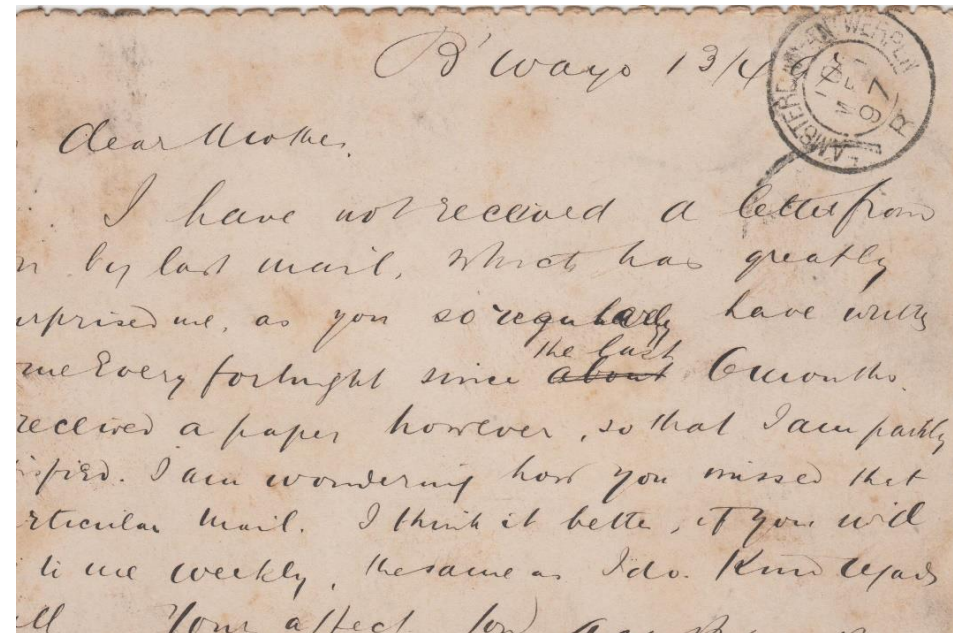 B'wayo 13/4
AMSTERDAM-ANTWERPEN
97
B
dear Mother.
I have not received a letter from
by last mail, which has greatly
urprised me, as you so regularly have writt
me Every fortnight since about the last 6 months.
received a paper however, so that I am partly
isfied. I am wondering how you missed that
rticular mail. I think it better, if you will
to me weekly, the same as I do. Kind regards
ll Your affect